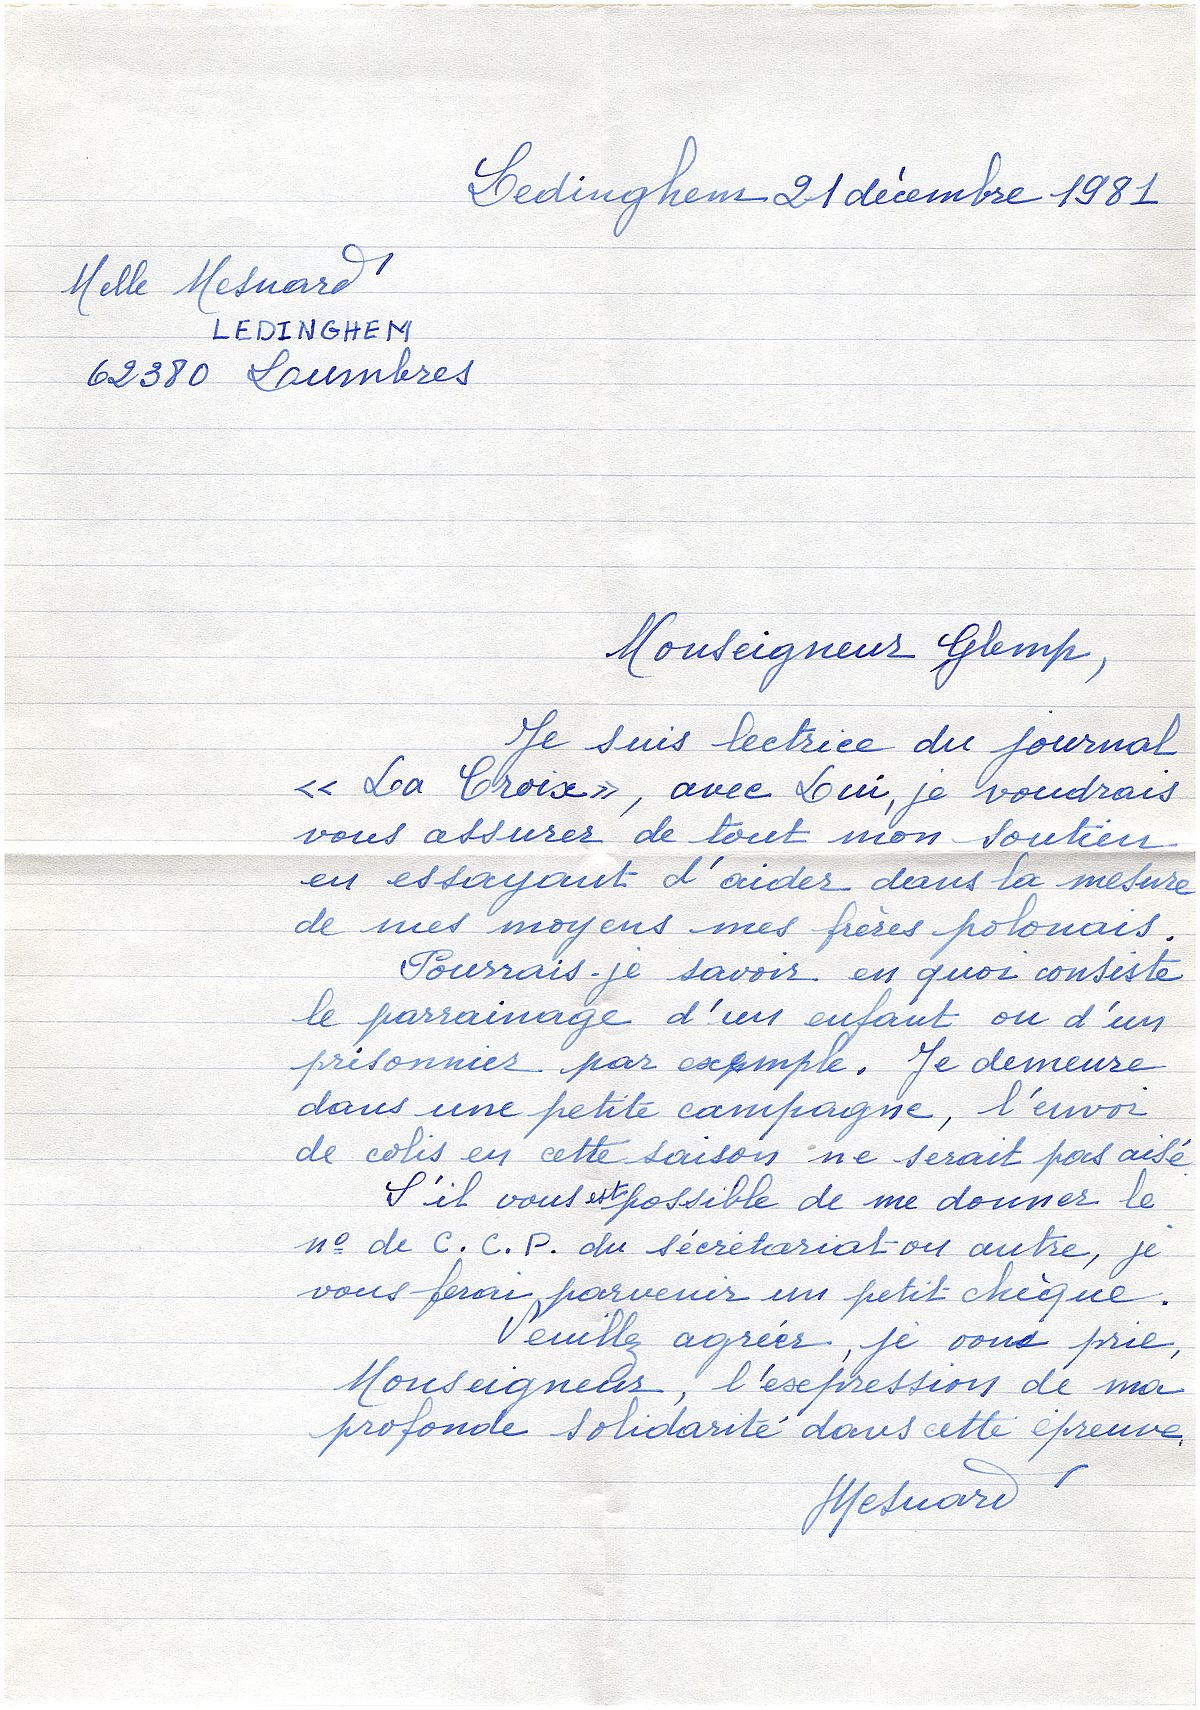 Ledinghem 21 décembre 1981
Melle Mesnard
LEDINGHEM
62380 Lumbres
Monseigneur Glemp,
Je suis lectrice du journal
« La Croix », avec Lui, je voudrais
vous assurer de tout mon soutien
en essayant d'aider dans la mesure
de mes moyens mes frères polonais.
Pourrais-je savoir en quoi consiste
le parrainage d'un enfant ou d'un
prisonnier par exemple. Je demeure
dans une petite campagne, l'envoi
de colis en cette saison ne serait pas aisé
S'il vous est possible de me donner le
nº de C.C.P. du secrétariat ou autre, je
vous ferai parvenir un petit chèque.
Veuillez agréer, je vous prie,
Monseigneur, l'expression de ma
profonde solidarité dans cette épreuve.
Mesnard